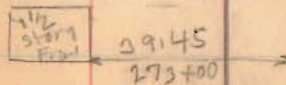 1 1/2
Story
Fram
39.45
273+00